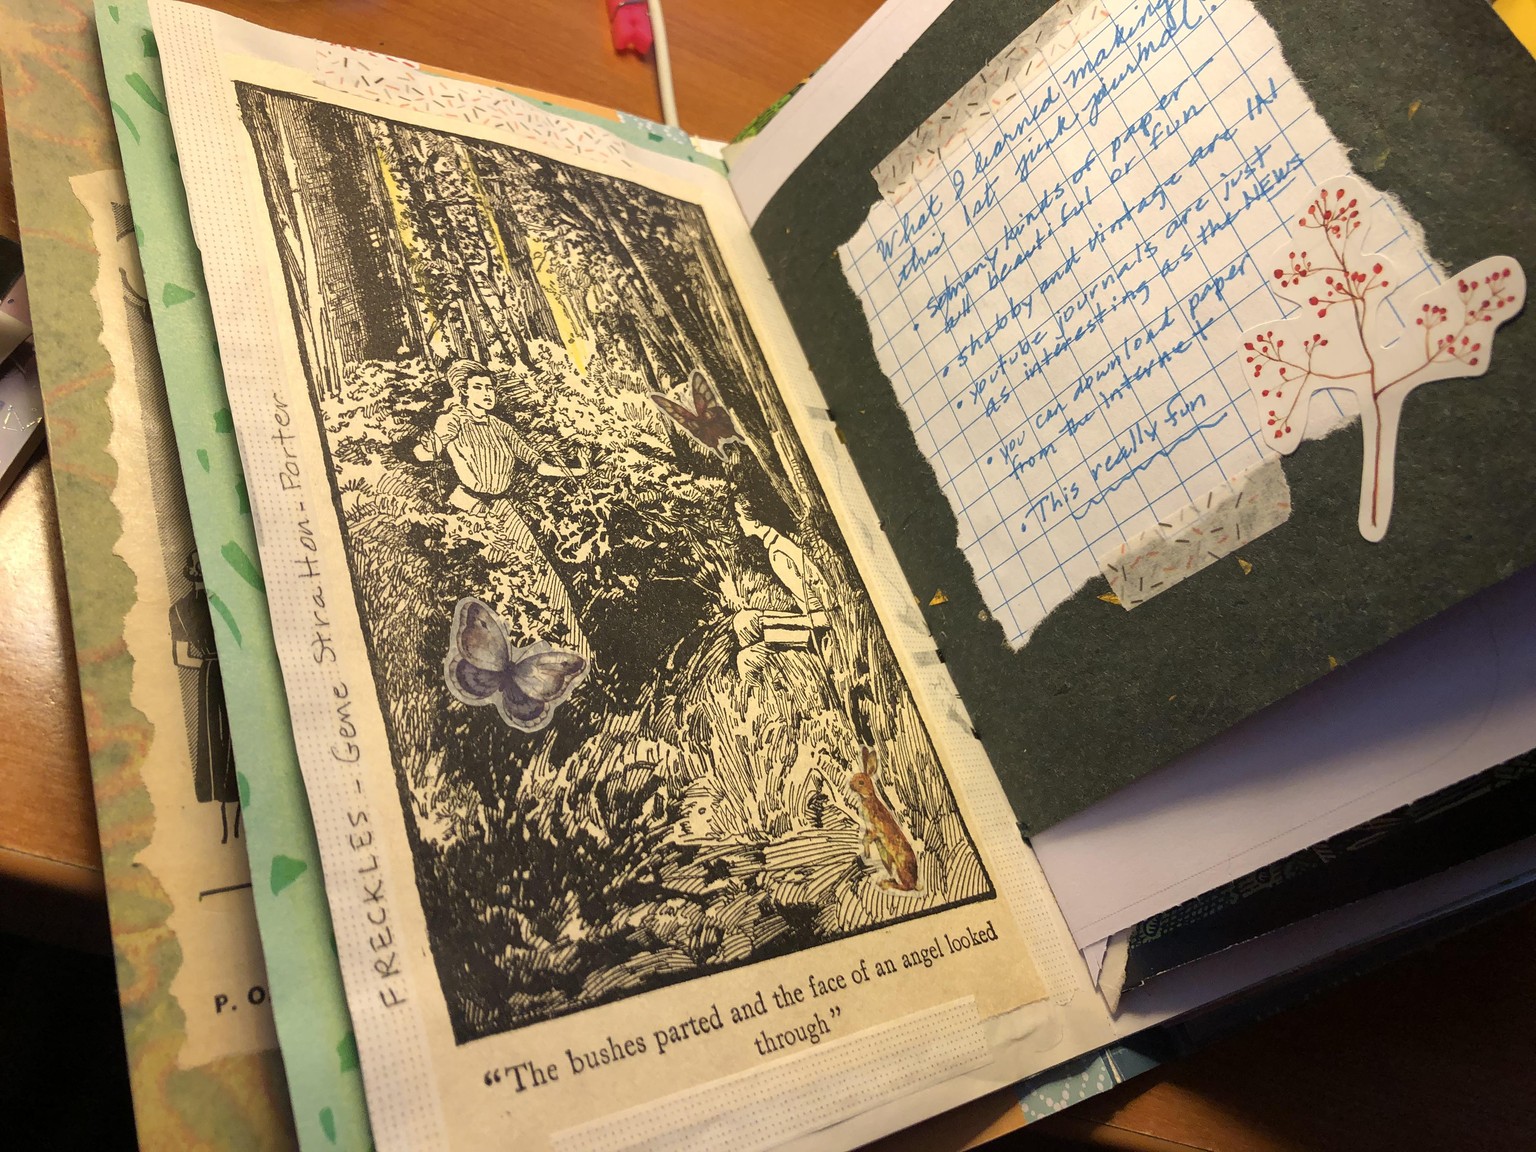 P. O.
FRECKLES - Gene Stratton-Porter
“The bushes parted and the face of an angel looked
through”
What I learned making
this 1st junk journal!
• So many kinds of paper -
all beautiful or fun
• shabby and vintage are IN!
• youtube journals are just
as interesting as the NEWS
• you can download paper
from the internet
• This really fun